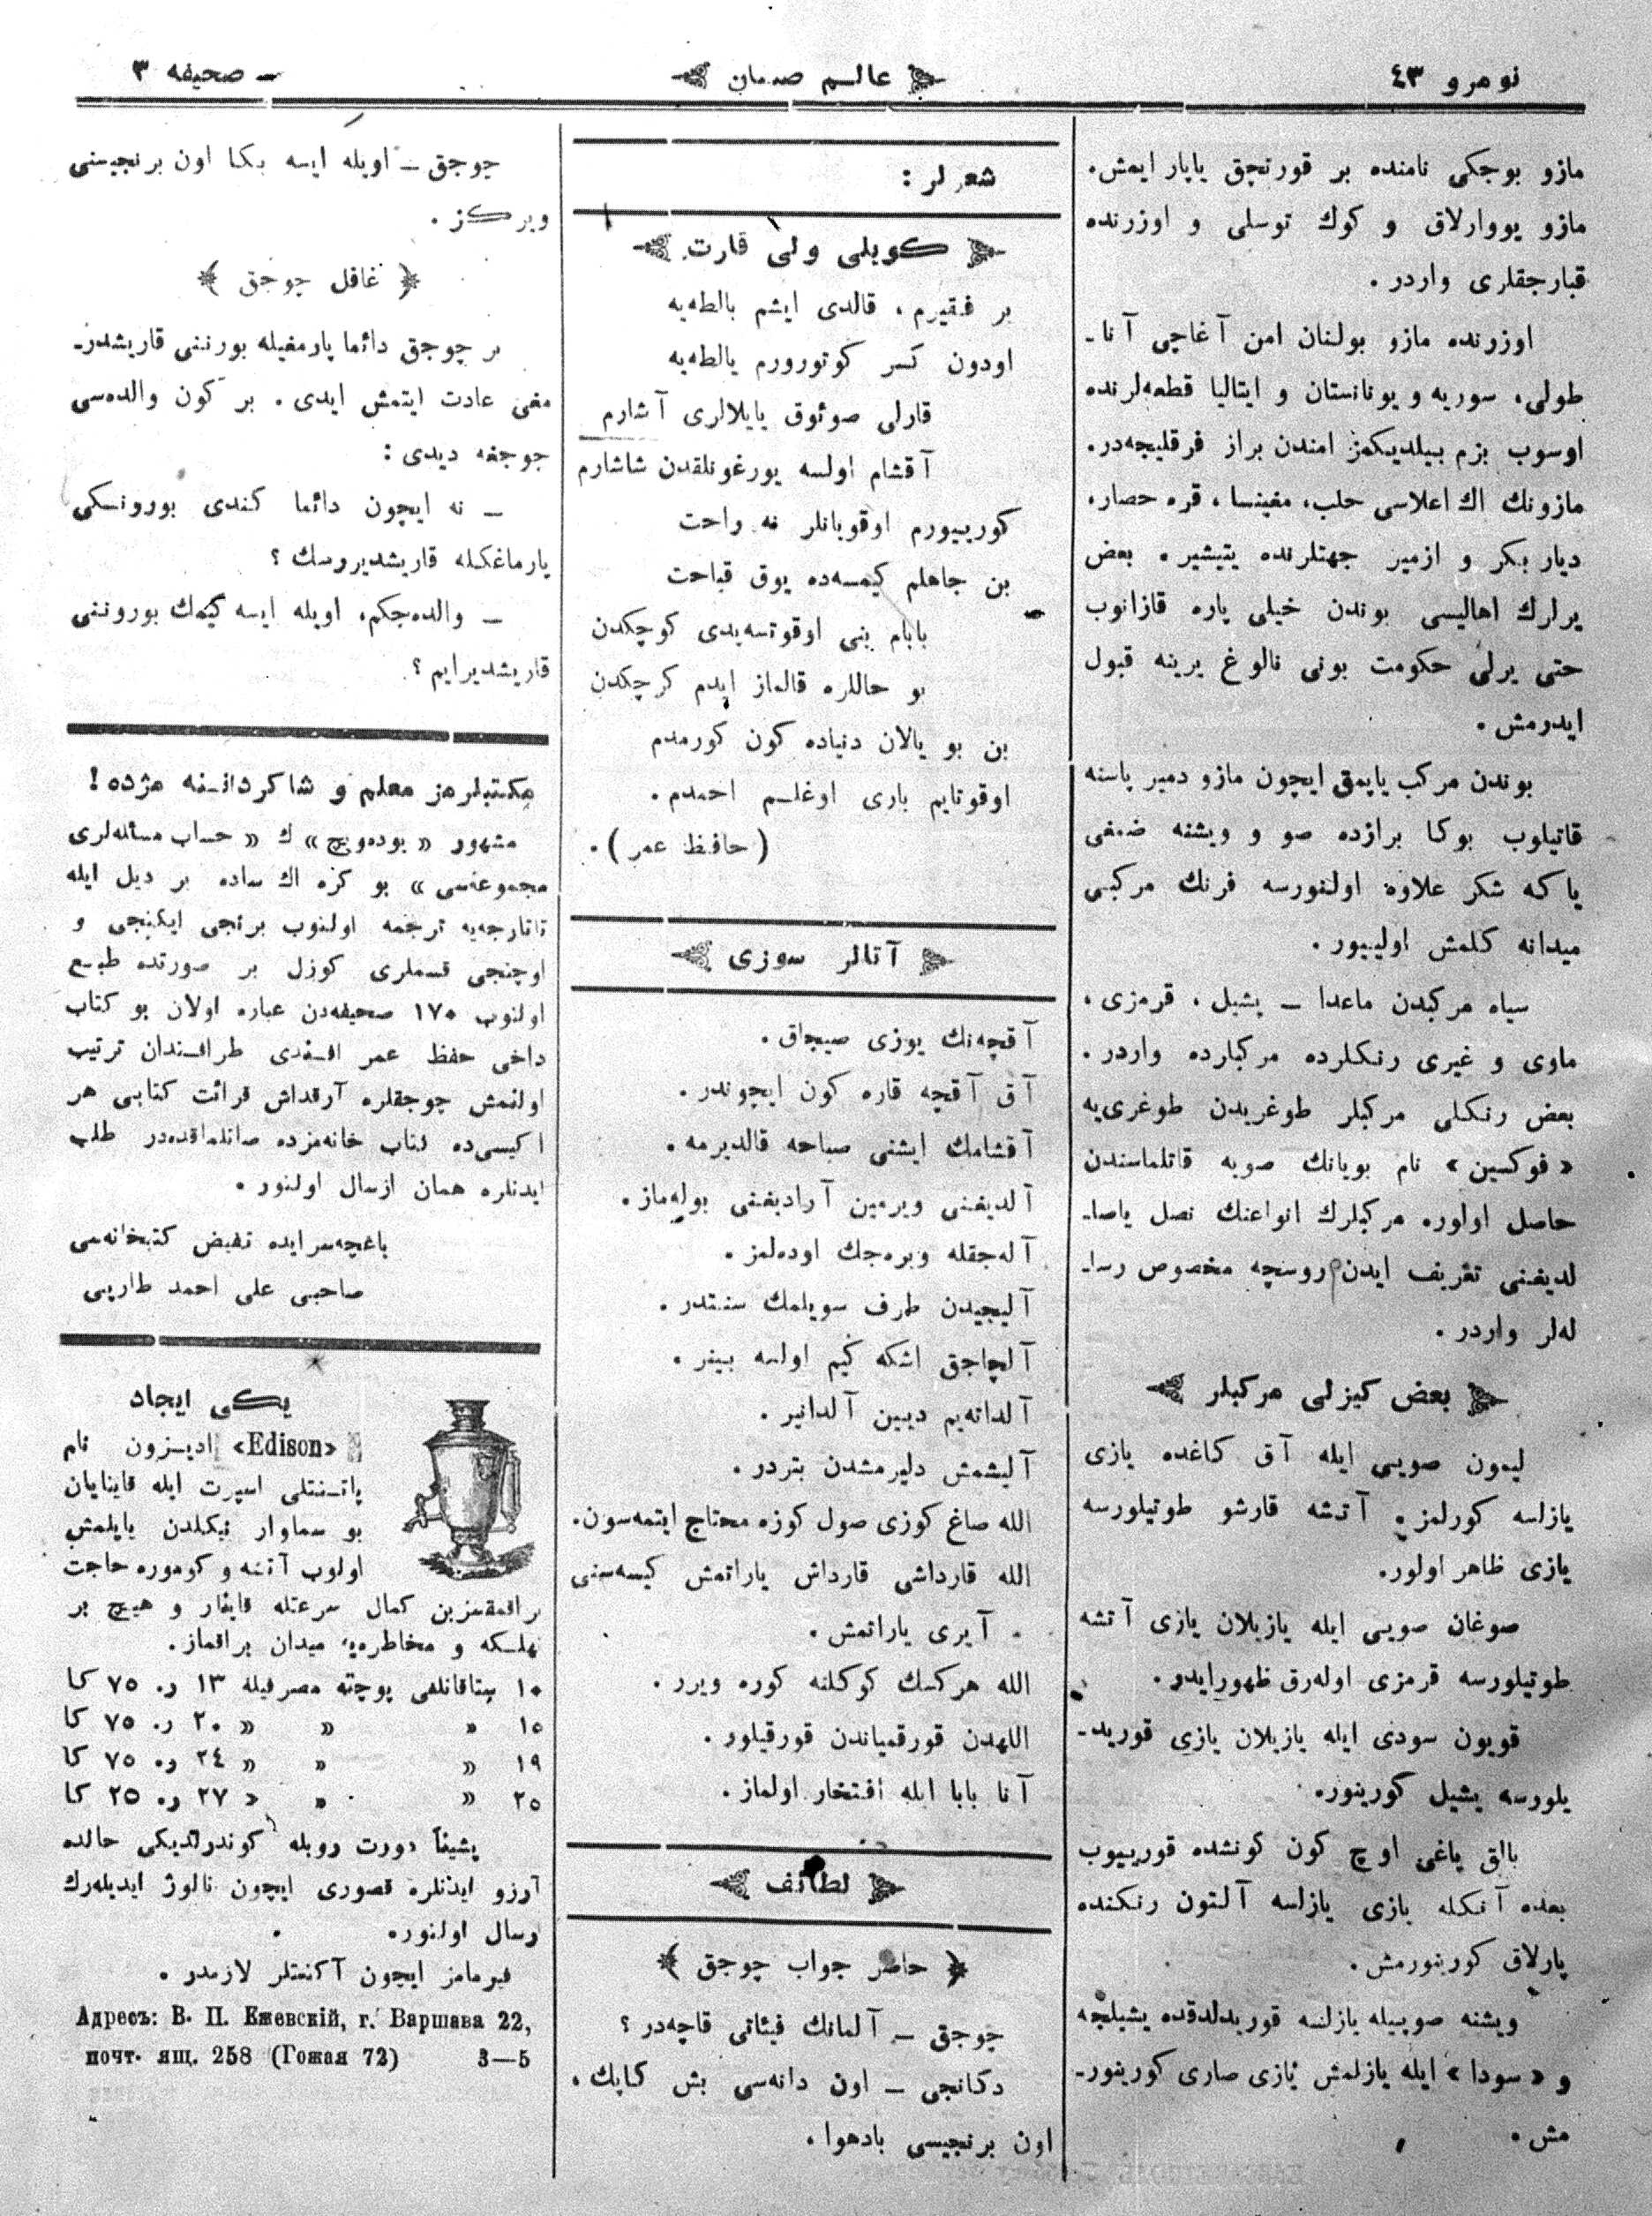 نومرو ٤٣
عالم صبيان
صحيفه ٣
مازو بوجكى نامنده بر قورتجق ياپار ايمش.
مازو يووارلاق و كوك توسلى و اوزرنده
قبارجقلرى واردر.
اوزرنده مازو بولنان امن آغاچى آناـ
طولى، سوريه و يونانستان و ايتاليا قطعه‌لرنده
اوسوب بزم بيلديكمز امندن براز فرقليجه‌در.
مازونك اك اعلاسى حلب، مغينسا، قره حصار،
ديار بكر و ازمير جهتلرنده يتيشير. بعض
يرلرك اهاليسى بوندن خيلى پاره قازانوب
حتى يرلى حكومت بونى نالوغ يرينه قبول
ايدرمش.
بوندن مركب ياپمق ايچون مازو دمير پاسنه
قاتيلوب بوكا برازده صو و ويشنه ضمغى
ياكه شكر علاوه اولنورسه فرنك مركبى
ميدانه كلمش اوليور.
سياه مركبدن ماعدا ـ يشيل، قرمزى،
ماوى و غيرى رنكلرده مركبلرده واردر.
بعض رنكلى مركبلر طوغريدن طوغرى‌يه
«فوكسين» نام بويانك صويه قاتلماسندن
حاصل اولور. مركبلرك انواعنك نصل ياصاـ
لديغنى تعريف ايدن روسچه مخصوص رساـ
له‌لر واردر.
بعض كيزلى مركبلر
ليمون صويى ايله آق كاغده يازى
يازلسه كورلمز. آتشه قارشو طوتيلورسه
يازى ظاهر اولور.
صوغان صويى ايله يازيلان يازى آتشه
طوتيلورسه قرمزى اوله‌رق ظهور ايدر.
قويون سودى ايله يازيلان يازى قوريدـ
يلورسه يشيل كورينور.
بالق ياغى اوچ كون كونشده قوريبوب
بعده آنكله يازى يازلسه آلتون رنكنده
پارلاق كورينورمش.
ويشنه صوييله يازلسه قوريدلدقده يشيلجه
و «سودا» ايله يازلمش يازى صارى كورينورـ
مش.
شعرلر:
كويلى ولى قارت
بر فقيرم، قالدى ايشم بالطه‌يه
اودون كسر كوتورورم يالطه‌يه
قارلى صوئوق يايلالرى آشارم
آقشام اولسه يورغونلقدن شاشارم
كورييورم اوقويانلر نه راحت
بن جاهلم كيمسه‌ده يوق قباحت
بابام بنى اوقوتسه‌يدى كوچكدن
بو حاللره قالماز ايدم كرچكدن
بن بو يالان دنياده كون كورمدم
اوقوتايم بارى اوغلم احمدم.
(حافظ عمر).
آتالر سوزى
آقچه‌نك يوزى صيجاق.
آق آقچه قاره كون ايچوندر.
آقشامك ايشنى صباحه قالديرمه.
آلديغنى ويرمين آراديغنى بوله‌ماز.
آله‌جقله ويره‌جك اوده‌لمز.
آليجيدن طرف سويلمك سنتدر.
آلچاجق اشكه كيم اولسه بينر.
آلداته‌يم ديين آلدانير.
آليشمش دليرمشدن بتردر.
الله صاغ كوزى صول كوزه محتاج ايتمه‌سون.
الله قارداشى قارداش ياراتمش كيسه‌سنى
آيرى ياراتمش.
الله هركسك كوكلنه كوره ويرر.
اللهدن قورقمياندن قورقيلور.
آنا بابا ايله افتخار اولماز.
لطائف
حاضر جواب چوجق
چوجق ـ آلمانك فيئاتى قاچه‌در؟
دكانجى ـ اون دانه‌سى بش كاپك،
اون برنجيسى بادهوا.
چوجق ـ اويله ايسه بكا اون برنجيسنى
ويركز.
غافل چوجق
بر چوجق دائما پارمغيله بورننى قاريشدرـ
مغى عادت ايتمش ايدى. بر كون والده‌سى
چوجغه ديدى:
ـ نه ايچون دائما كندى بورونكى
پارماغكله قاريشديرورسك؟
ـ والده‌جكم، اويله ايسه كيمك بوروننى
قاريشديرايم؟
مكتبلرمز معلم و شاكردانـنه مژده!
مشهور «بوده‌ويچ»ك «حساب مسئله‌لرى
مجموعه‌سى» بو كره اك ساده بر ديل ايله
تاتارجه‌يه ترجمه اولنوب برنجى ايكنجى و
اوچنجى قسملرى كوزل بر صورتده طبع
اولنوب ١٧٠ صحيفه‌دن عباره اولان بو كتاب
داخى حفظ عمر افندى طرفندان ترتيب
اولنمش چوجقلره آرقداش قرائت كتابى هر
ايكيسى‌ده كتاب خانه‌مزده صاتلماقده‌در طلب
ايدنلره همان ارسال اولنور.
باغچه‌سرايده تفيض كتبخانه‌سى
صاحبى على احمد طارپى
يكى ايجاد
«Edison» اديزون نام
پاتنتلى اسپرت ايله قاينايان
بو سماوار نيكلدن ياپلمش
اولوب آتشه و كوموره حاجت
براقمقسزين كمال سرعتله قاينار و هيچ بر
تهلكه و مخاطره‌يه ميدان براقماز.
١٠ ستاقانلغى پوچته مصرفيله ١٣ ر. ٧٥ كا
١٥ « « « ٢٠ ر. ٧٥ كا
١٩ « « « ٢٤ ر. ٧٥ كا
٢٥ « « « ٢٧ ر. ٢٥ كا
پشيناً دورت روبله كوندرلديكى حالده
آرزو ايدنلره قصورى ايچون نالوژ ايديله‌رك
رسال اولنور.
فيرمامز ايچون آكنتلر لازمدر.
Адресъ: В. П. Ежевскій, г. Варшава 22,
почт. ящ. 258 (Гожая 72) 3—5